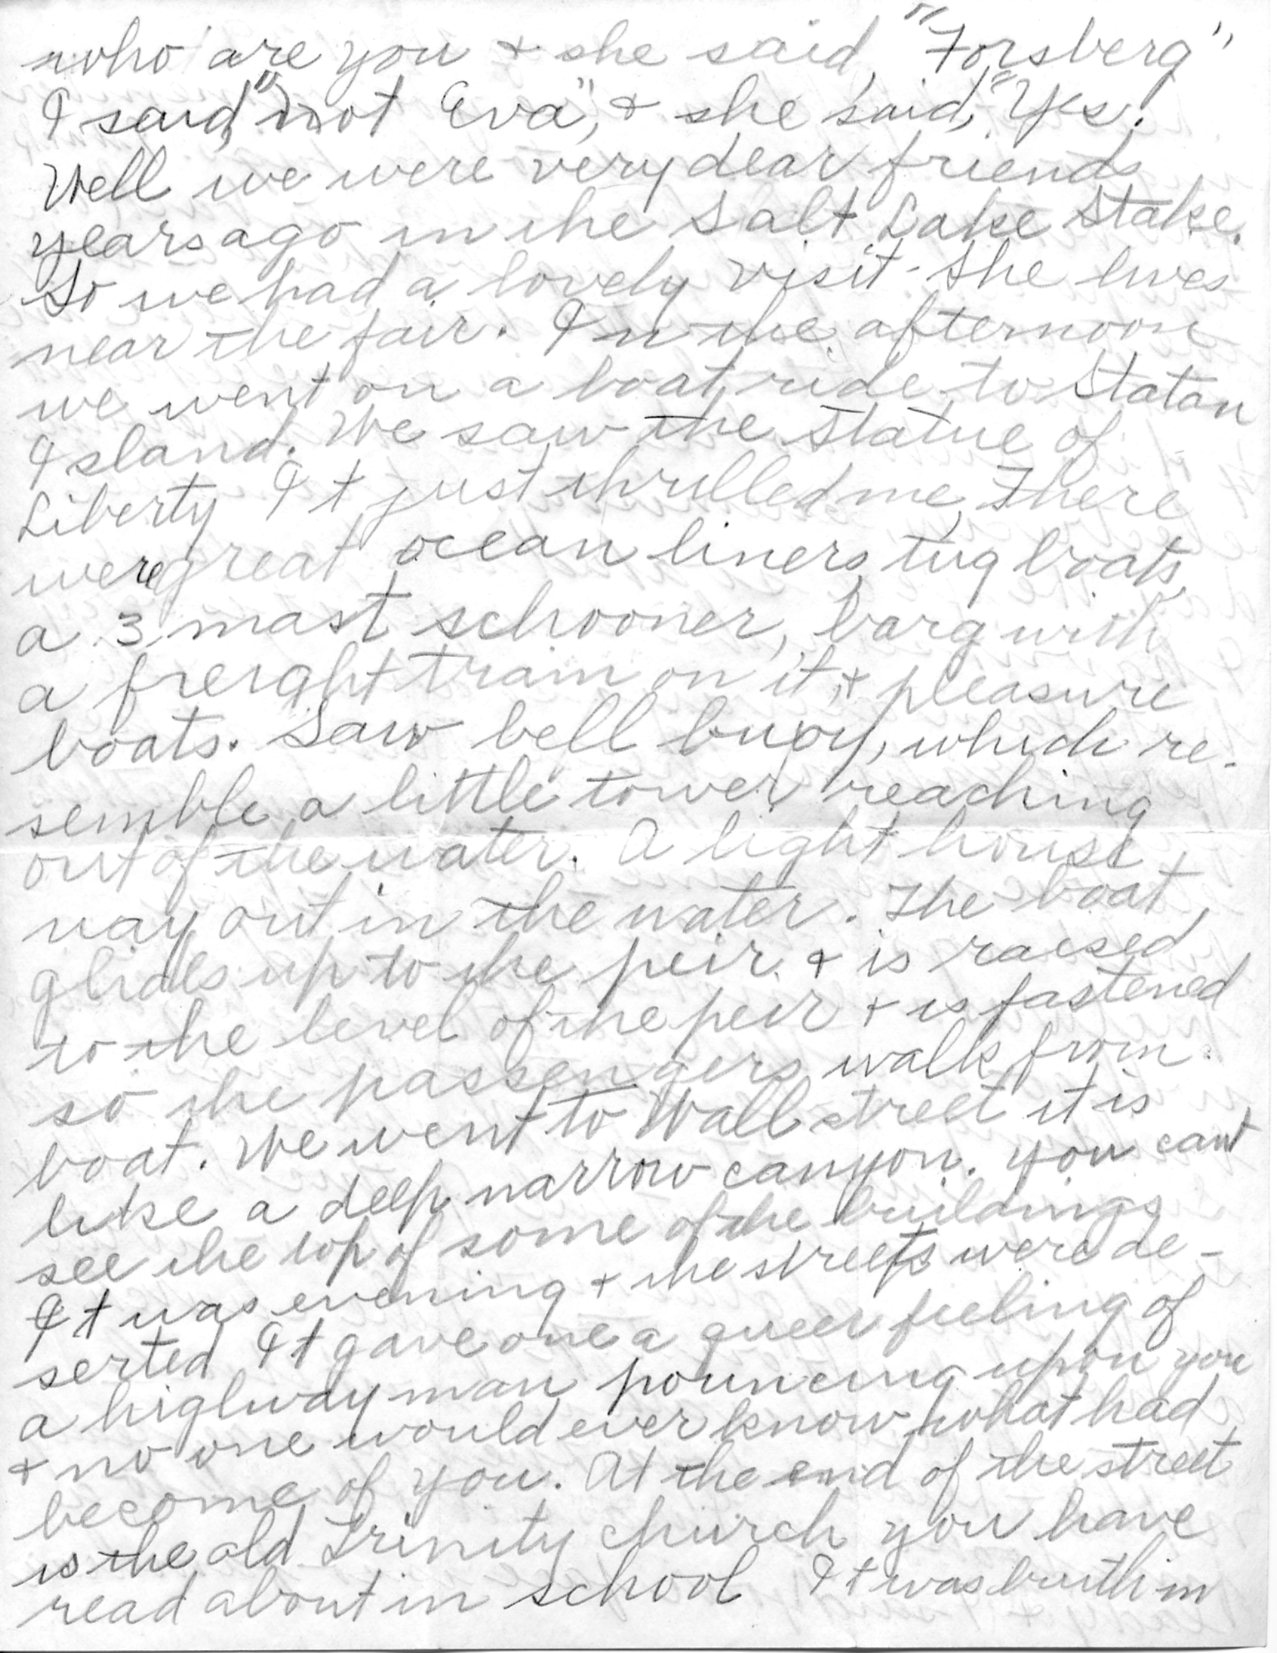 who are you & she said, "Forsberg"
I said, "not Eva", & she said, "Yes.
Well we were very dear friends
years ago in the Salt Lake Stake.
So we had a lovely visit. She lives
near the fair. In the afternoon
we went on a boat ride to Statan
Island. We saw the Statue of
Liberty It just thrilled me, There
were great ocean liners, tug boats,
a 3 mast schooner, barg with
a freight train on it, & pleasure
boats. Saw bell buoy, which re-
semble a little tower reaching
out of the water. A light house
way out in the water. The boat,
glides up to the peir & is raised
to the level of the peir & is fastened
so the passengers walk from
boat. We went to Wall street it is
like a deep narrow canyon. you cant
see the top of some of the buildings
It was evening & the streets were de-
serted It gave one a queer feeling of
a highway man pouncing upon you
& no one would ever know what had
become of you. At the end of the street
is the old Trinity church you have
read about in school It was built in